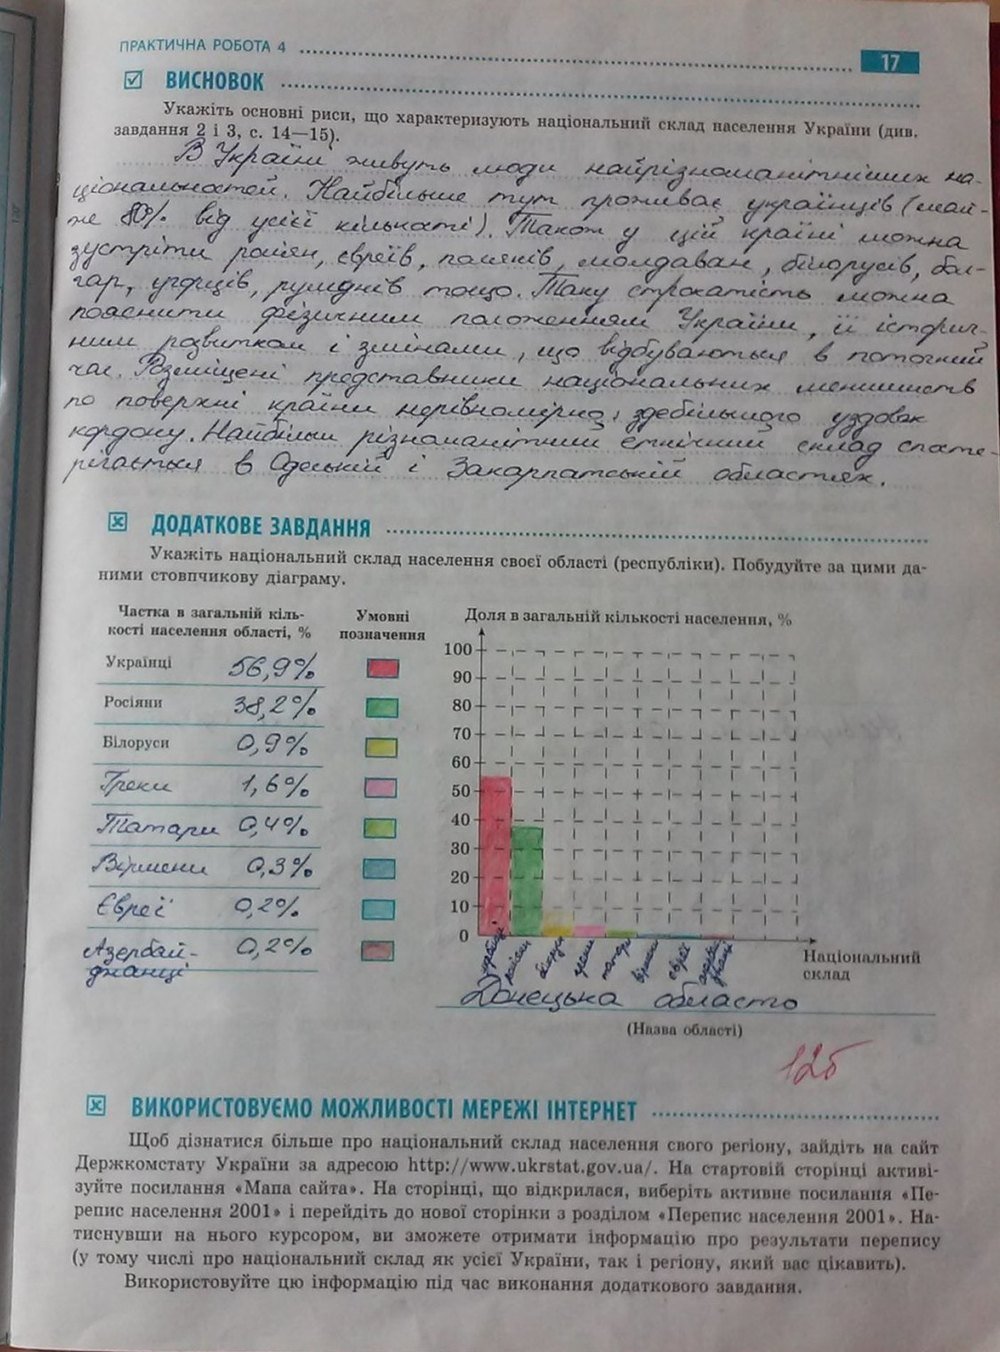 ПРАКТИЧНА РОБОТА 4
17
ВИСНОВОК
Укажіть основні риси, що характеризують національний склад населення України (див.
завдання 2 і 3, с. 14—15).
В Україні живуть люди найрізноманітніших на-
ціональностей. Найбільше тут проживає українців (май-
же 80% від усієї кількості). Також у цій країні можна
зустріти росіян, євреїв, поляків, молдаван, білорусів, бол-
гар, угорців, румунів тощо. Таку строкатість можна
пояснити фізичним положенням України, її історич-
ним розвитком і змінами, що відбуваються в поточний
час. Розміщені представники національних меншинств
по поверхні країни нерівномірно, здебільшого уздовж
кордону. Найбільш різноманітний етнічний склад спосте-
рігається в Одеській і Закарпатській областях.
ДОДАТКОВЕ ЗАВДАННЯ
Укажіть національний склад населення своєї області (республіки). Побудуйте за цими да-
ними стовпчикову діаграму.
Частка в загальній кіль-
кості населення області, %
Умовні
позначення
Українці 56,9%
Росіяни 38,2%
Білоруси 0,9%
Греки 1,6%
Татари 0,4%
Вірмени 0,3%
Євреї 0,2%
Азербай-
джанці 0,2%
Доля в загальній кількості населення, %
100
90
80
70
60
50
40
30
20
10
0
українці
росіяни
білоруси
греки
татари
вірмени
євреї
Національний
склад
Донецька область
(Назва області)
12б
ВИКОРИСТОВУЄМО МОЖЛИВОСТІ МЕРЕЖІ ІНТЕРНЕТ
Щоб дізнатися більше про національний склад населення свого регіону, зайдіть на сайт
Держкомстату України за адресою http://www.ukrstat.gov.ua/. На стартовій сторінці активі-
зуйте посилання «Мапа сайта». На сторінці, що відкрилася, виберіть активне посилання «Пе-
репис населення 2001» і перейдіть до нової сторінки з розділом «Перепис населення 2001». На-
тиснувши на нього курсором, ви зможете отримати інформацію про результати перепису
(у тому числі про національний склад як усієї України, так і регіону, який вас цікавить).
Використовуйте цю інформацію під час виконання додаткового завдання.